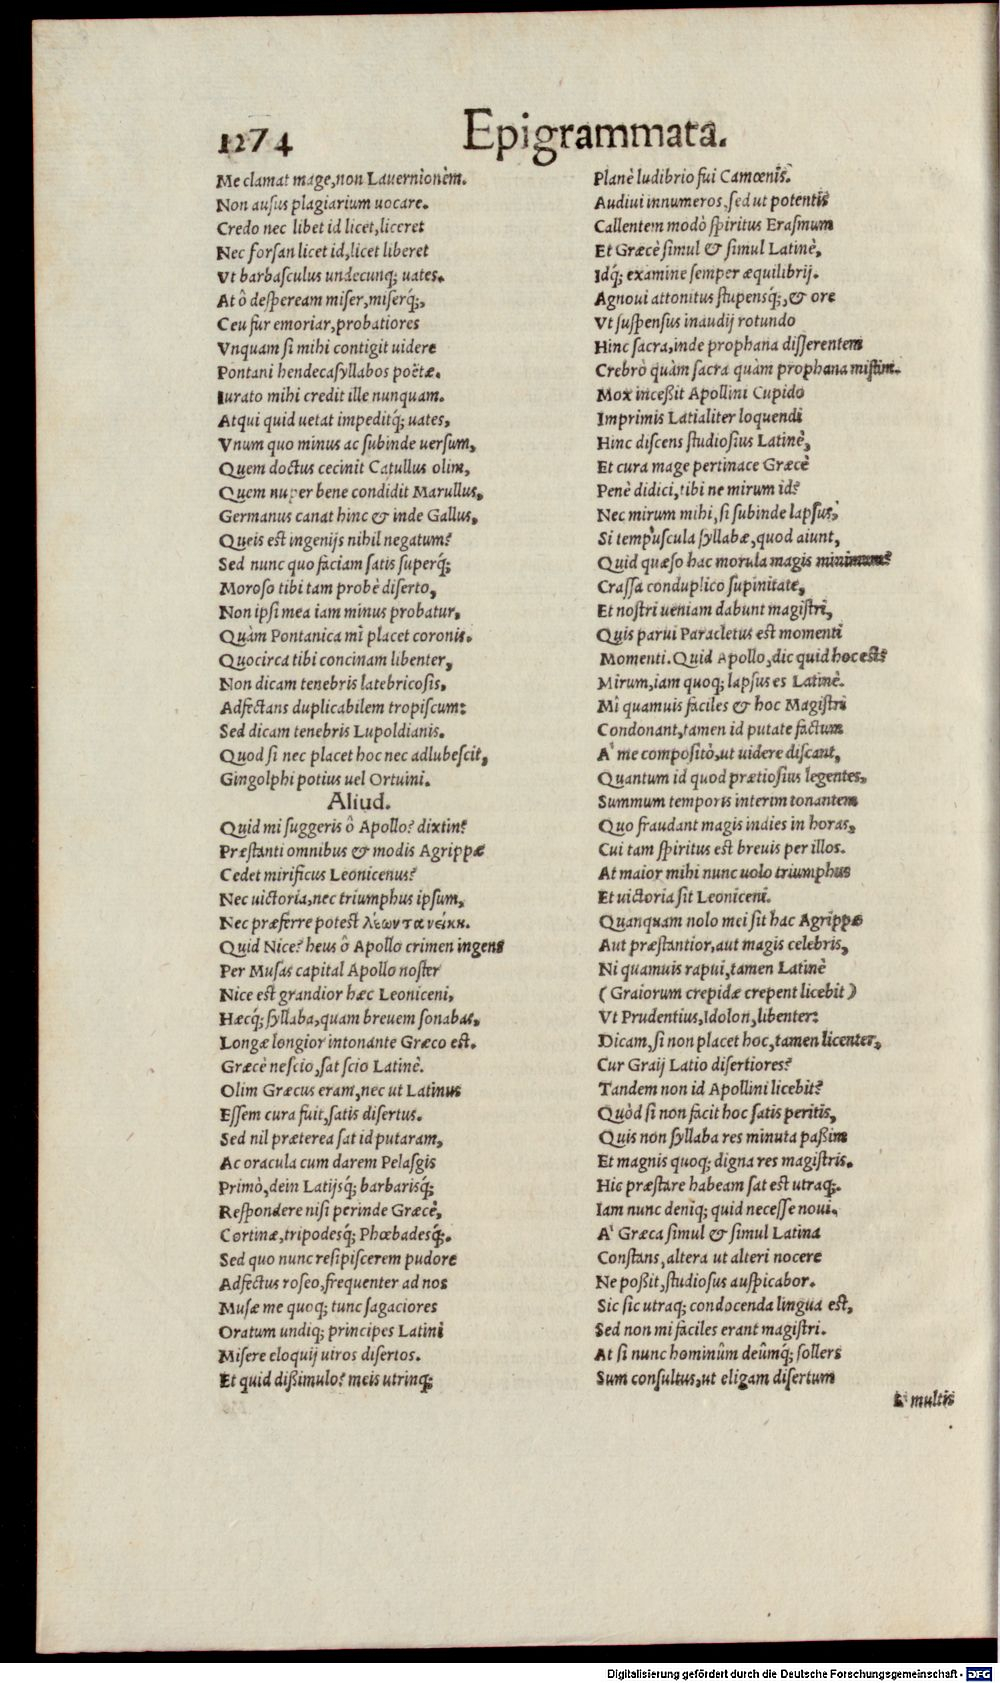 1274
Epigrammata.
Me clamat mage, non Lauernionem.
Non ausus plagiarium uocare.
Credo nec libet id licet, liceret
Nec forsan licet id, licet liberet
Vt barbasculus undecunq; uates.
At ô despeream miser, miserq́;,
Ceu fur emoriar, probatiores
Vnquam si mihi contigit uidere
Pontani hendecasyllabos poëtæ.
Iurato mihi credit ille nunquam.
Atqui quid uetat impeditq; uates,
Vnum quo minus ac subinde uersum,
Quem doctus cecinit Catullus olim,
Quem nuper bene condidit Marullus,
Germanus canat hinc & inde Gallus,
Queis est ingenijs nihil negatum?
Sed nunc quo faciam satis superq́;
Moroso tibi tam probè diserto,
Non ipsi mea iam minus probatur,
Quàm Pontanica mî placet coronis.
Quocirca tibi concinam libenter,
Non dicam tenebris latebricosis,
Adfectans duplicabilem tropiscum:
Sed dicam tenebris Lupoldianis.
Quod si nec placet hoc nec adlubescit,
Gingolphi potius uel Ortuini.
Aliud.
Quid mi suggeris ô Apollo? dixtin?
Præstanti omnibus & modis Agrippæ
Cedet mirificus Leonicenus?
Nec uictoria, nec triumphus ipsum,
Nec præferre potest λέωντα νείκη.
Quid Nice? heus ô Apollo crimen ingens
Per Musas capital Apollo noster
Nice est grandior hæc Leoniceni,
Hæcq́; syllaba, quam breuem sonabas,
Longæ longior intonante Græco est.
Græcè nescio, sat scio Latinè.
Olim Græcus eram, nec ut Latinus
Essem cura fuit, satis disertus.
Sed nil præterea sat id putaram,
Ac oracula cum darem Pelasgis
Primò, dein Latijsq́; barbarisq́;
Respondere nisi perinde Græcè,
Cortinæ, tripodesq́; Phœbadesq́;.
Sed quo nunc resipiscerem pudore
Adfectus roseo, frequenter ad nos
Musæ me quoq; tunc sagaciores
Oratum undiq; principes Latini
Misere eloquij uiros disertos.
Et quid dißimulo? meis utrinq;
Planè ludibrio fui Camœnis.
Audiui innumeros, sed ut potentis
Callentem modò spiritus Erasmum
Et Græcè simul & simul Latinè,
Idq́; examine semper æquilibrij.
Agnoui attonitus stupensq́;, & ore
Vt suspensus inaudij rotundo
Hinc sacra, inde prophana disserentem
Crebrò quàm sacra quàm prophana mistim.
Mox inceßit Apollini Cupido
Imprimis Latialiter loquendi
Hinc discens studiosius Latinè,
Et cura mage pertinace Græcè
Penè didici, tibi ne mirum id?
Nec mirum mihi, si subinde lapsus,
Si tempuscula syllabæ, quod aiunt,
Quid quæso hac morula magis minimum?
Crassa conduplico supinitate,
Et nostri ueniam dabunt magistri,
Quis parui Paracletus est momenti
Momenti. Quid Apollo, dic quid hoc est?
Mirum, iam quoq; lapsus es Latinè.
Mî quamuis faciles & hoc Magistri
Condonant, tamen id putate factum
A' me compositò, ut uidere discant,
Quantum id quod prætiosius legentes,
Summum temporis interim tonantem
Quo fraudant magis indies in horas,
Cui tam spiritus est breuis per illos.
At maior mihi nunc uolo triumphus
Et uictoria sit Leoniceni.
Quanquam nolo mei sit hac Agrippæ
Aut præstantior, aut magis celebris,
Ni quamuis rapui, tamen Latinè
(Graiorum crepidæ crepent licebit)
Vt Prudentius, Idolon, libenter:
Dicam, si non placet hoc, tamen licenter,
Cur Graij Latio disertiores?
Tandem non id Apollini licebit?
Quòd si non facit hoc satis peritis,
Quis non syllaba res minuta paßim
Et magnis quoq; digna res magistris.
Hic præstare habeam sat est utraq;.
Iam nunc deniq; quid necesse noui.
A' Græca simul & simul Latina
Constans, altera ut alteri nocere
Ne poßit, studiosus auspicabor.
Sic sic utraq; condocenda lingua est,
Sed non mi faciles erant magistri.
At si nunc hominûm deûmq́; sollers
Sum consultus, ut eligam disertum
E' multis
Digitalisierung gefördert durch die Deutsche Forschungsgemeinschaft - DFG